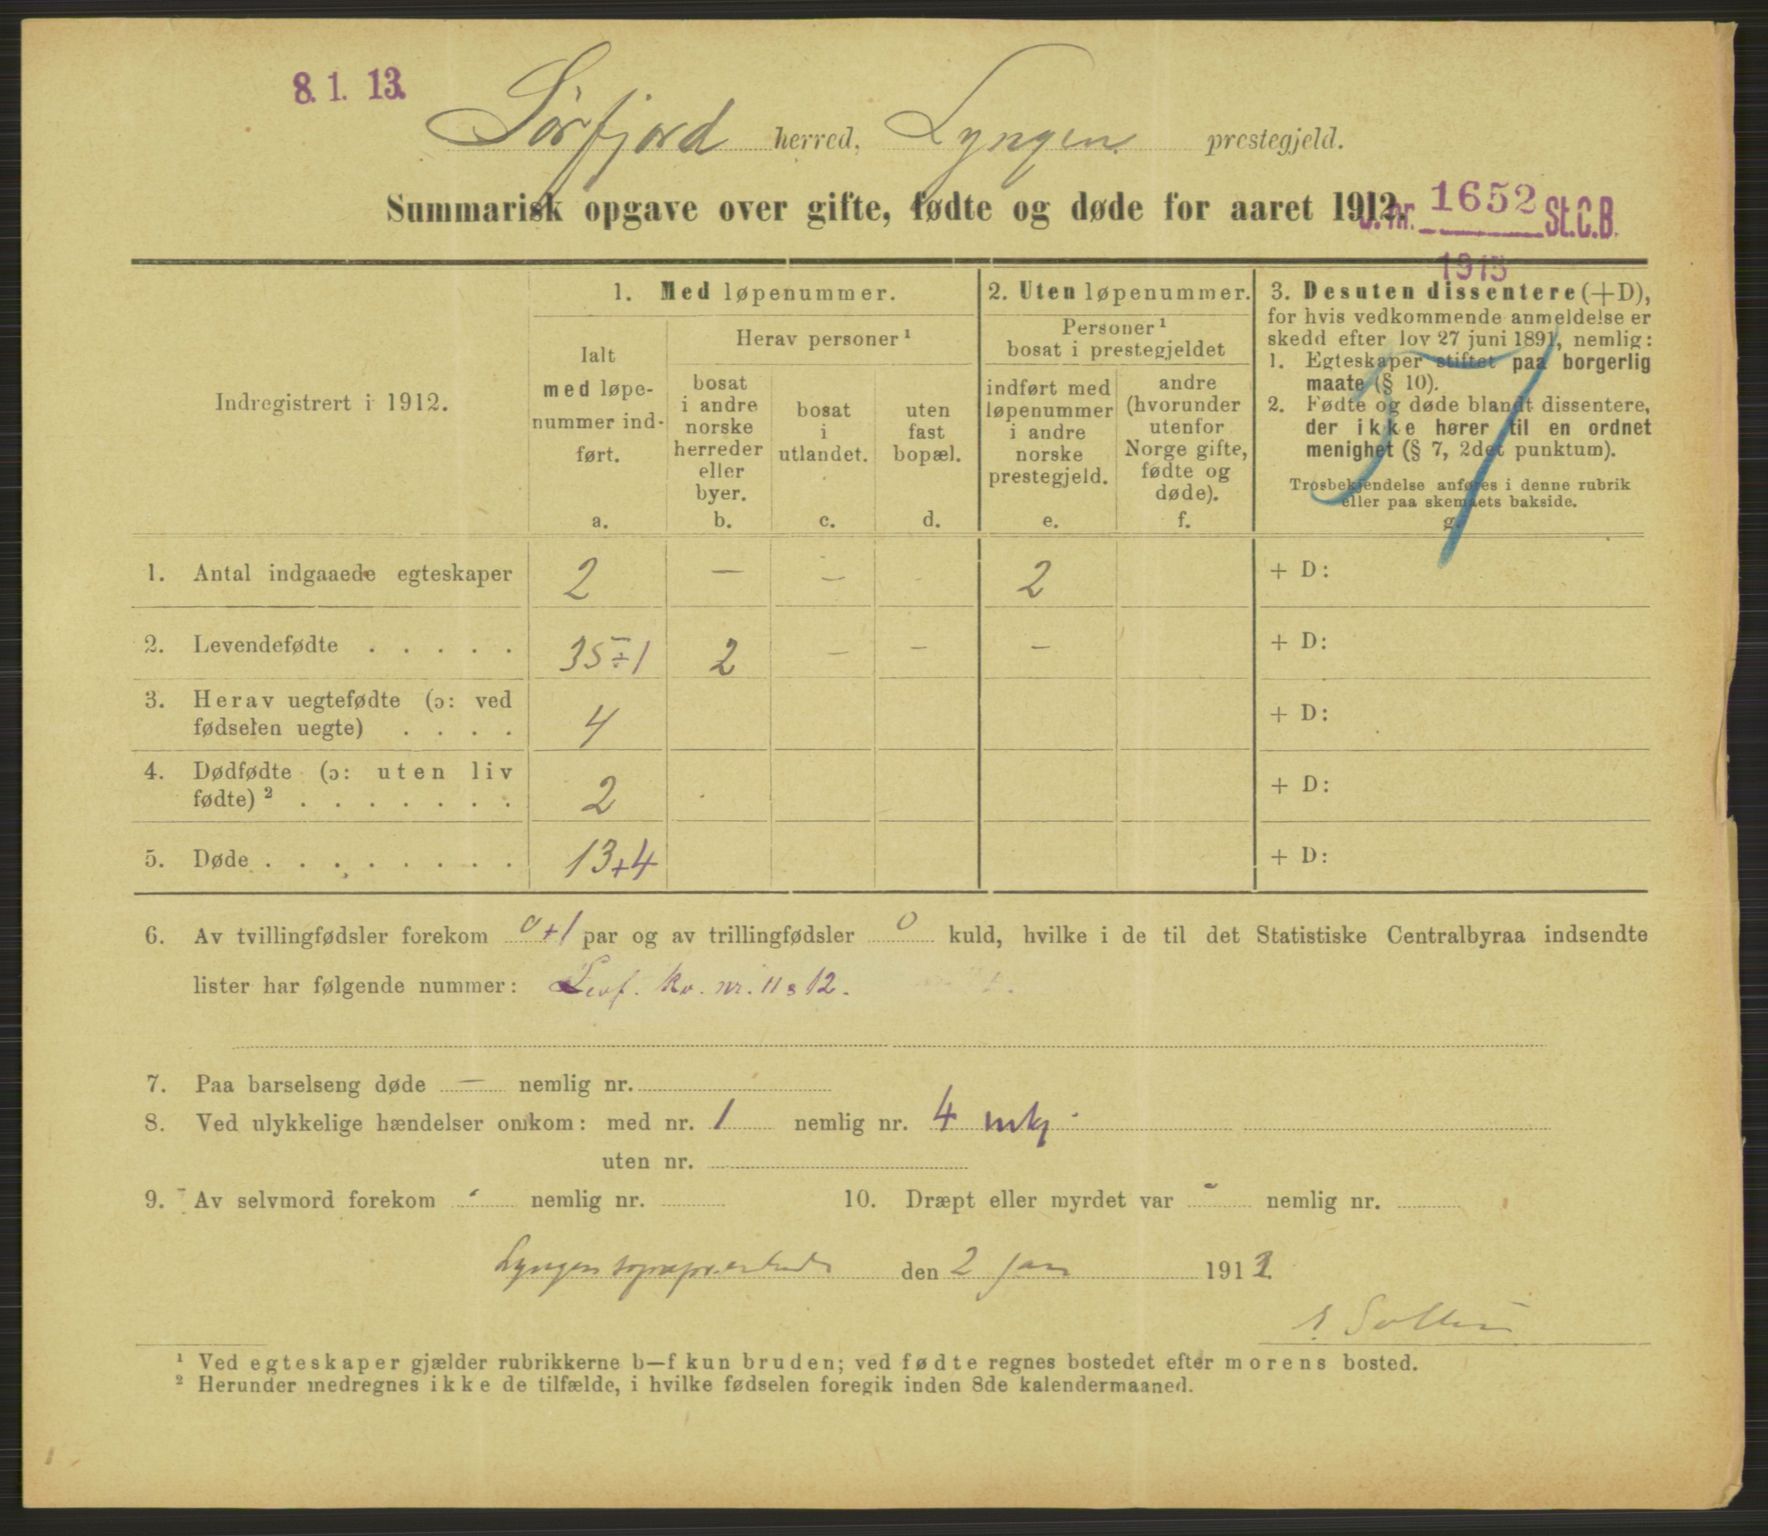 8. 1. 13.
Sörfjord herred, Lyngen prestegjeld.
Summarisk opgave over gifte, fødte og døde for aaret 1912.
J. nr. 1652 St.C.B.
1913
Indregistrert i 1912.
1. Med løpenummer.
Ialt
med løpe-
nummer ind-
ført.
a.
Herav personer ¹
bosat
i andre
norske
herreder
eller
byer.
b.
bosat
i
utlandet.
c.
uten
fast
bopæl.
d.
2. Uten løpenummer.
Personer ¹
bosat i prestegjeldet
indført med
løpenummer
i andre
norske
prestegjeld.
e.
andre
(hvorunder
utenfor
Norge gifte,
fødte og
døde).
f.
3. Desuten dissentere (+D),
for hvis vedkommende anmeldelse er
skedd efter lov 27 juni 1891, nemlig:
1. Egteskaper stiftet paa borgerlig
maate (§ 10).
2. Fødte og døde blandt dissentere,
der ikke hører til en ordnet
menighet (§ 7, 2det punktum).
Trosbekjendelse anføres i denne rubrik
eller paa skemaets bakside.
g.
1. Antal indgaaede egteskaper 2 — — - 2 + D:
2. Levendefødte . . . . . 35 ÷ 1 2 — — — + D:
3. Herav uegtefødte (ɔ: ved
fødselen uegte) . . . . 4 + D:
4. Dødfødte (ɔ: uten liv
fødte) ² . . . . . . . 2 + D:
5. Døde . . . . . . . . 13+4 + D:
6. Av tvillingfødsler forekom 0+1 par og av trillingfødsler 0 kuld, hvilke i de til det Statistiske Centralbyraa indsendte
lister har følgende nummer: Levf. kv. nr. 11 & 12.
7. Paa barselseng døde — nemlig nr.
8. Ved ulykkelige hændelser omkom: med nr. 1 nemlig nr. 4 mkj
uten nr.
9. Av selvmord forekom - nemlig nr. 10. Dræpt eller myrdet var - nemlig nr.
Lyngen den 2 jan 1913
¹ Ved egteskaper gjælder rubrikkerne b—f kun bruden; ved fødte regnes bostedet efter morens bosted.
² Herunder medregnes ikke de tilfælde, i hvilke fødselen foregik inden 8de kalendermaaned.